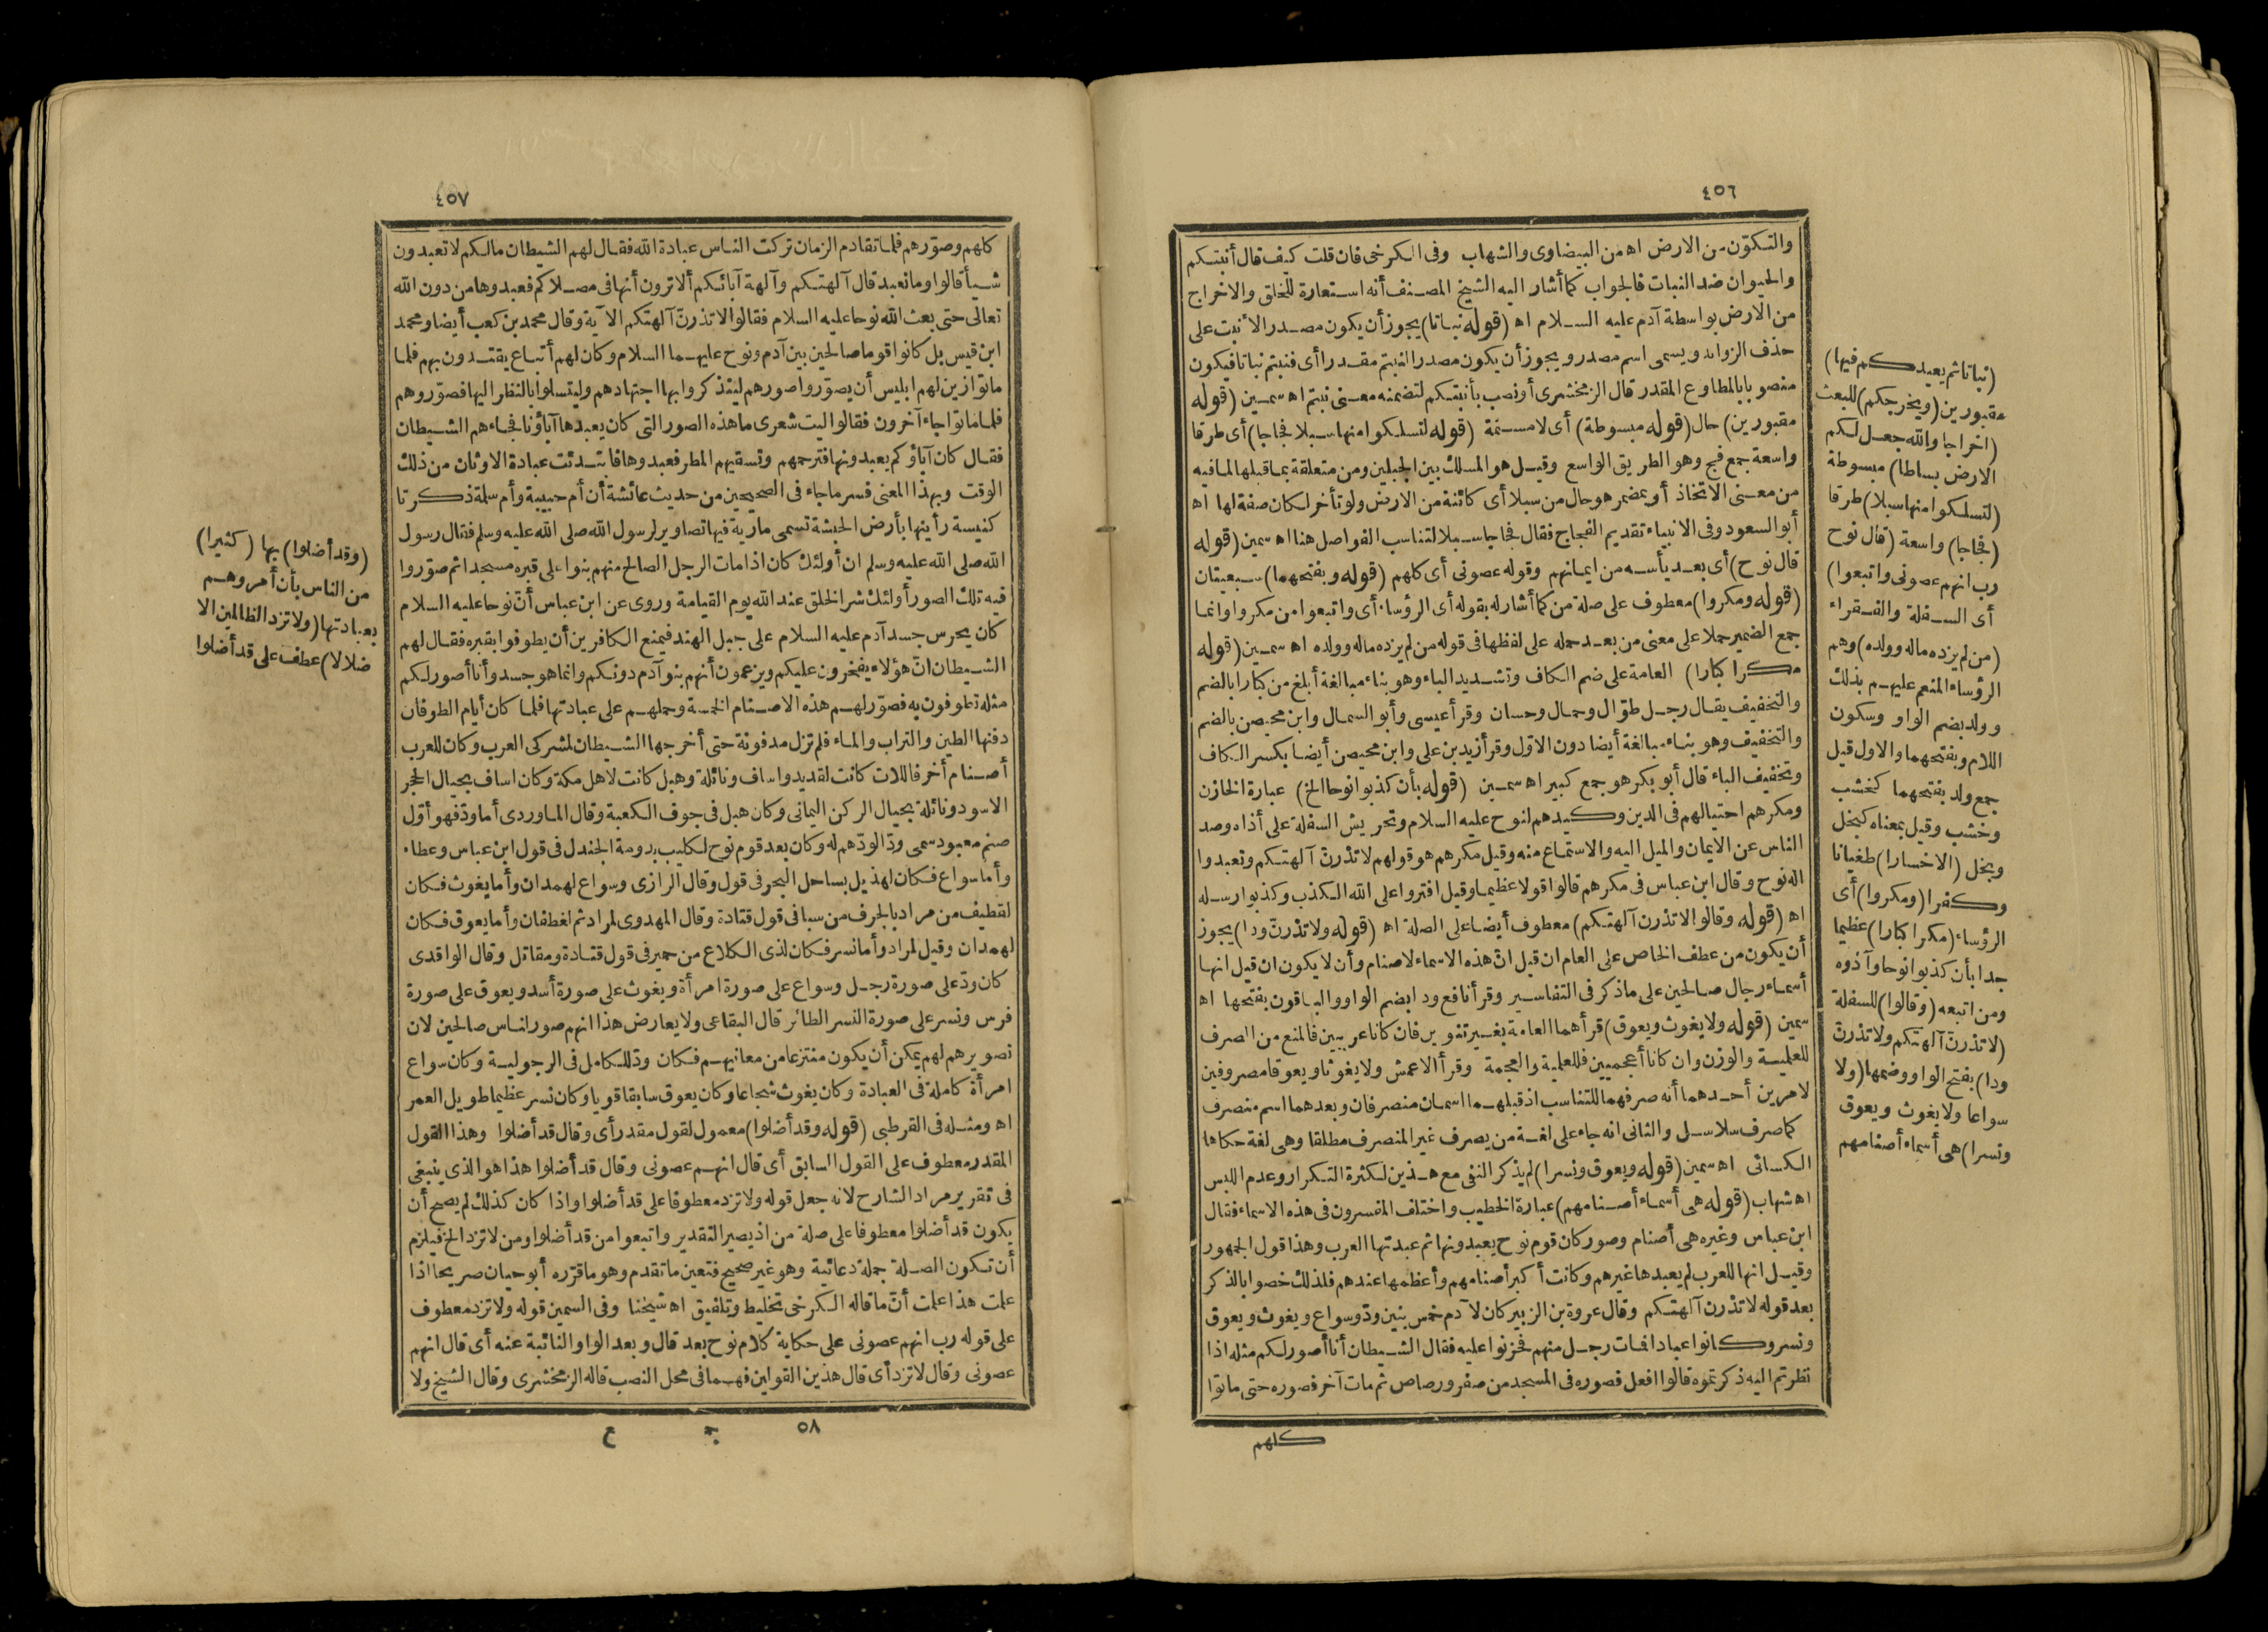 ٤٥٦
والتكوّن من الارض اه من البيضاوى والشهاب وفى الكرخى فان قلت كيف قال أنبتكم
والحيوان ضد النبات فالجواب كما أشار اليه الشيخ المصنف أنه استعارة للخلق والاخراج
من الارض بواسطة آدم عليه السلام اه (قوله نباتا) يجوز أن يكون مصدر الأنبت على
حذف الزوائد ويسمى اسم مصدر ويجوز أن يكون مصدر النبتم مقدرا أى فنبتم نباتا فيكون
منصوبا بالمطاوع المقدر قال الزمخشرى أو نصب بأنبتكم لتضمنه معنى نبتم اه سمين (قوله
مقبورين) حال (قوله مبسوطة) أى لا مسنمة (قوله لتسلكوا منها سبلا فجاجا) أى طرقا
واسعة جمع فج وهو الطريق الواسع وقيل هو المسلك بين الجبلين ومن متعلقة بما قبلها لما فيه
من معنى الاتخاذ أو بمضمر هو حال من سبلا أى كائنة من الارض ولو تأخر لكان صفة لها اه
أبو السعود وفى الانبياء تقديم الفجاج فقال فجاجا سبلا لتناسب الفواصل هنا اه سمين (قوله
قال نوح) أى بعد يأسه من ايمانهم وقوله عصونى أى كلهم (قوله وبفتحهما) سبعيتان
(قوله ومكروا) معطوف على صلة من كما أشار له بقوله أى الرؤساء أى واتبعوا من مكروا وانما
جمع الضمير حملا على معنى من بعد حمله على لفظها فى قوله من لم يزده ماله وولده اه سمين (قوله
مكرا كبارا) العامة على ضم الكاف وتشديد الباء وهو بناء مبالغة أبلغ من كبارا بالضم
والتخفيف يقال رجل طوّال وجمال وحسان وقرأ عيسى وأبو السمال وابن محيصن بالضم
والتخفيف وهو بناء مبالغة أيضا دون الاوّل وقرأ زيد بن على وابن محيصن أيضا بكسر الكاف
وتخفيف الباء قال أبو بكر هو جمع كبير اه سمين (قوله بأن كذبوا نوحا الخ) عبارة الخازن
ومكرهم احتيالهم فى الدين وكيدهم لنوح عليه السلام وتحريش السفلة على أذاه وصد
الناس عن الايمان والميل اليه والاستماع منه وقيل مكرهم هو قولهم لا تذرنّ آلهتكم وتعبدوا
اله نوح وقال ابن عباس فى مكرهم قالوا قولا عظيما وقيل افتروا على الله الكذب وكذبوا رسله
اه (قوله وقالوا لا تذرن آلهتكم) معطوف أيضا على الصلة اه (قوله ولا تذرنّ ودا) يجوز
أن يكون من عطف الخاص على العام ان قيل انّ هذه الاسماء لاصنام وأن لا يكون ان قيل انها
أسماء رجال صالحين على ما ذكر فى التفاسير وقرأ نافع ودا بضم الواو والباقون بفتحها اه
سمين (قوله ولا يغوث ويعوق) قرأهما العامة بغير تنوين فان كانا عربيين فالمنع من الصرف
للعلمية والوزن وان كانا أعجميين فللعلمية والعجمة وقرأ الاعمش ولا يغوثا ويعوقا مصروفين
لامرين أحدهما أنه صرفهما للتناسب اذ قبلهما اسمان منصرفان وبعدهما اسم منصرف
كما صرف سلاسل والثانى انه جاء على لغة من يصرف غير المنصرف مطلقا وهى لغة حكاها
الكسائى اه سمين (قوله ويعوق ونسرا) لم يذكر النفى مع هذين لكثرة التكرار وعدم اللبس
اه شهاب (قوله هى أسماء أصنامهم) عبارة الخطيب واختلف المفسرون فى هذه الاسماء فقال
ابن عباس وغيره هى أصنام وصور كان قوم نوح يعبدونها ثم عبدتها العرب وهذا قول الجمهور
وقيل انها للعرب لم يعبدها غيرهم وكانت أكبر أصنامهم وأعظمها عندهم فلذلك خصوا بالذكر
بعد قوله لا تذرن آلهتكم وقال عروة بن الزبير كان لآدم خمس بنين ودّ وسواع ويغوث ويعوق
ونسر وكانوا عبادا فمات رجل منهم فحزنوا عليه فقال الشيطان أنا أصور لكم مثله اذا
نظرتم اليه ذكرتموه قالوا افعل فصوره فى المسجد من صفر ورصاص ثم مات آخر فصوره حتى ماتوا
كلهم
(نباتا ثم يعيدكم فيها)
مقبورين (ويخرجكم) للبعث
(اخراجا والله جعل لكم
الارض بساطا) مبسوطة
(لتسلكوا منها سبلا) طرقا
(فجاجا) واسعة (قال نوح
رب انهم عصونى واتبعوا)
أى السفلة والفقراء
(من لم يزده ماله وولده) وهم
الرؤساء المنعم عليهم بذلك
وولد بضم الواو وسكون
اللام وبفتحهما والاول قيل
جمع ولد بفتحهما كخشب
وخشب وقيل بمعناه كبخل
وبخل (الا خسارا) طغيانا
وكفرا (ومكروا) أى
الرؤساء (مكرا كبارا) عظيما
جدا بأن كذبوا نوحا وآذوه
ومن اتبعه (وقالوا) للسفلة
(لا تذرنّ آلهتكم ولا تذرنّ
ودا) بفتح الواو وضمها (ولا
سواعا ولا يغوث ويعوق
ونسرا) هى أسماء أصنامهم
٤٥٧
كلهم وصوّرهم فلما تقادم الزمان تركت الناس عبادة الله فقال لهم الشيطان مالكم لا تعبدون
شيأ قالوا وما نعبد قال آلهتكم وآلهة آبائكم ألا ترون أنها فى مصلاكم فعبدوها من دون الله
تعالى حتى بعث الله نوحا عليه السلام فقالوا لا تذرنّ آلهتكم الآية وقال محمد بن كعب أيضا ومحمد
ابن قيس بل كانوا قوما صالحين بين آدم ونوح عليهما السلام وكان لهم أتباع يقتدون بهم فلما
ماتوا زين لهم ابليس أن يصوّروا صورهم ليتذكروا بها اجتهادهم وليتسلوا بالنظر اليها فصوّروهم
فلما ماتوا جاء آخرون فقالوا ليت شعرى ما هذه الصور التى كان يعبدها آباؤنا فجاءهم الشيطان
فقال كان آباؤكم يعبدونها فترحمهم وتسقيهم المطر فعبدوها فابتدئت عبادة الاوثان من ذلك
الوقت وبهذا المعنى فسر ما جاء فى الصحيحين من حديث عائشة أن أم حبيبة وأم سلمة ذكرتا
كنيسة رأينها بأرض الحبشة تسمى مارية فيها تصاوير لرسول الله صلى الله عليه وسلم فقال رسول
الله صلى الله عليه وسلم ان أولئك كان اذا مات الرجل الصالح منهم بنوا على قبره مسجدا ثم صوّروا
فيه تلك الصور أولئك شر الخلق عند الله يوم القيامة وروى عن ابن عباس أنّ نوحا عليه السلام
كان يحرس جسد آدم عليه السلام على جبل الهند فيمنع الكافرين أن يطوفوا بقبره فقال لهم
الشيطان انّ هؤلاء يفخرون عليكم ويزعمون أنهم بنو آدم دونكم وانما هو جسد وأنا أصور لكم
مثله تطوفون به فصوّر لهم هذه الاصنام الخمسة وحملهم على عبادتها فلما كان أيام الطوفان
دفنها الطين والتراب والماء فلم تزل مدفونة حتى أخرجها الشيطان لمشركى العرب وكان للعرب
أصنام أخر فاللات كانت لقديد واساف ونائلة وهبل كانت لاهل مكة وكان اساف بحيال الحجر
الاسود ونائلة بحيال الركن اليمانى وكان هبل فى جوف الكعبة وقال الماوردى أما ودّ فهو أوّل
صنم معبود سمى ودّا لودّهم له وكان بعد قوم نوح لكليب بدومة الجندل فى قول ابن عباس وعطاء
وأما سواع فكان لهذيل بساحل البحر فى قول وقال الرازى وسواع لهمدان وأما يغوث فكان
لقطيف من مراد بالجرف من سبا فى قول قتادة وقال المهدوى لمراد ثم لغطفان وأما يعوق فكان
لهمدان وقيل لمراد وأما نسر فكان لذى الكلاع من حمير فى قول قتادة ومقاتل وقال الواقدى
كان ودّ على صورة رجل وسواع على صورة امرأة ويغوث على صورة أسد ويعوق على صورة
فرس ونسر على صورة النسر الطائر قال البقاعى ولا يعارض هذا انهم صور لناس صالحين لان
تصويرهم لهم يمكن أن يكون منتزعا من معانيهم فكان ودّ للكامل فى الرجولية وكان سواع
امرأة كاملة فى العبادة وكان يغوث شجاعا وكان يعوق سابقا قويا وكان نسر عظيما طويل العمر
اه ومثله فى القرطبى (قوله وقد أضلوا) معمول لقول مقدر أى وقال قد أضلوا وهذا القول
المقدر معطوف على القول السابق أى قال انهم عصونى وقال قد أضلوا هذا هو الذى ينبغى
فى تقرير مراد الشارح لانه جعل قوله ولا تزد معطوفا على قد أضلوا واذا كان كذلك لم يصح أن
يكون قد أضلوا معطوفا على صلة من اذ يصير التقدير واتبعوا من قد أضلوا ومن لا تزد الخ فيلزم
أن تكون الصلة جملة دعائية وهو غير صحيح فتعين ما تقدم وهو ما قرّره أبو حيان صريحا اذا
علمت هذا علمت أنّ ما قاله الكرخى تخليط وتلفيق اه شيخنا وفى السمين قوله ولا تزد معطوف
على قوله رب انهم عصونى على حكاية كلام نوح بعد قال وبعد الواو النائبة عنه أى قال انهم
عصونى وقال لا تزد أى قال هذين القولين فهما فى محل النصب قاله الزمخشرى وقال الشيخ ولا
٥٨ جـ ع
(وقد أضلوا) بها (كثيرا)
من الناس بأن أمروهم
بعبادتها (ولا تزد الظالمين الا
ضلالا) عطف على قد أضلوا